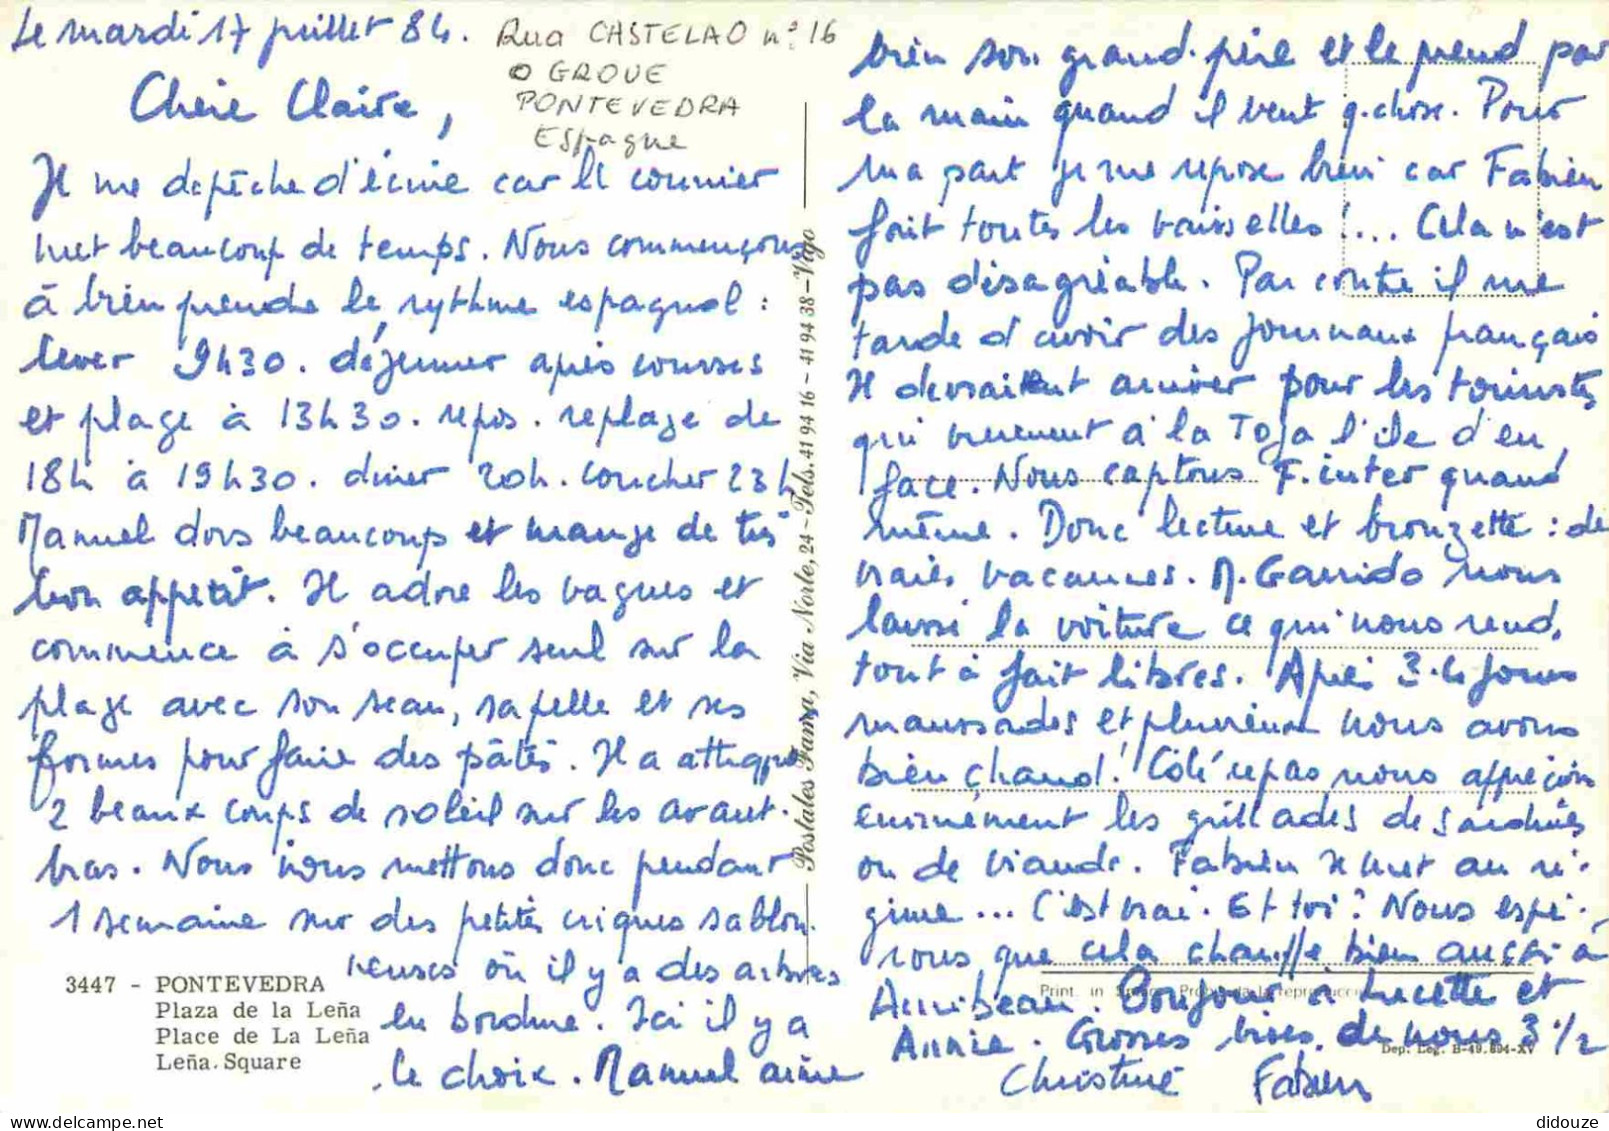 Le mardi 17 juillet 84.
Rua CASTELAO nº 16
O GROVE
PONTEVEDRA
Espagne
Chère Claire,
Je me dépêche d'écrire car le courrier
met beaucoup de temps. Nous commençons
à bien prendre le rythme espagnol :
lever 9h30. déjeuner après courses
et plage à 13h30. repos. replage de
18h à 19h30. diner 20h. coucher 23h
Manuel dors beaucoup et mange de très
bon appétit. Il adore les vagues et
commence à s'occuper seul sur la
plage avec son seau, sa pelle et ses
formes pour faire des pâtés. Il a attrapé
2 beaux coups de soleil sur les avant.
bras. Nous nous mettons donc pendant
1 semaine sur des petites criques sablon.
neuses où il y a des arbres
en bordure. Ici il y a
le choix. Manuel aime
3447 - PONTEVEDRA
Plaza de la Leña
Place de La Leña
Leña Square
Postales Fama, Via Norte, 24 - Tels. 41 94 16 - 41 94 38 - Vigo
bien son grand-père et le prend par
la main quand il veut q.chose. Pour
ma part je me repose bien car Fabien
fait toutes les vaisselles !... Cela n'est
pas désagréable. Par contre il me
tarde d'avoir des journaux français
Il devraient arriver pour les touristes
qui viennent à la Toja l'île d'en
face. Nous captons F.inter quand
même. Donc lecture et bronzette : de
vraies vacances. M. Garrido nous
laisse la voiture ce qui nous rend
tout à fait libres. Après 3.4 jours
maussades et pluvieux nous avons
bien chaud ! Côté repas nous apprécions
énormément les grillades de sardines
ou de viande. Fabien se met au ré-
gime... C'est vrai. Et toi ? Nous espé-
rons que cela chauffe bien aussi à
Print. in Spain Prohibida la reproducción
Bonjour à Lucette et
Annie. Grosses bises de nous 3 1/2
Dep. Leg. B-49.894-XV
Christine Fabien
didouze